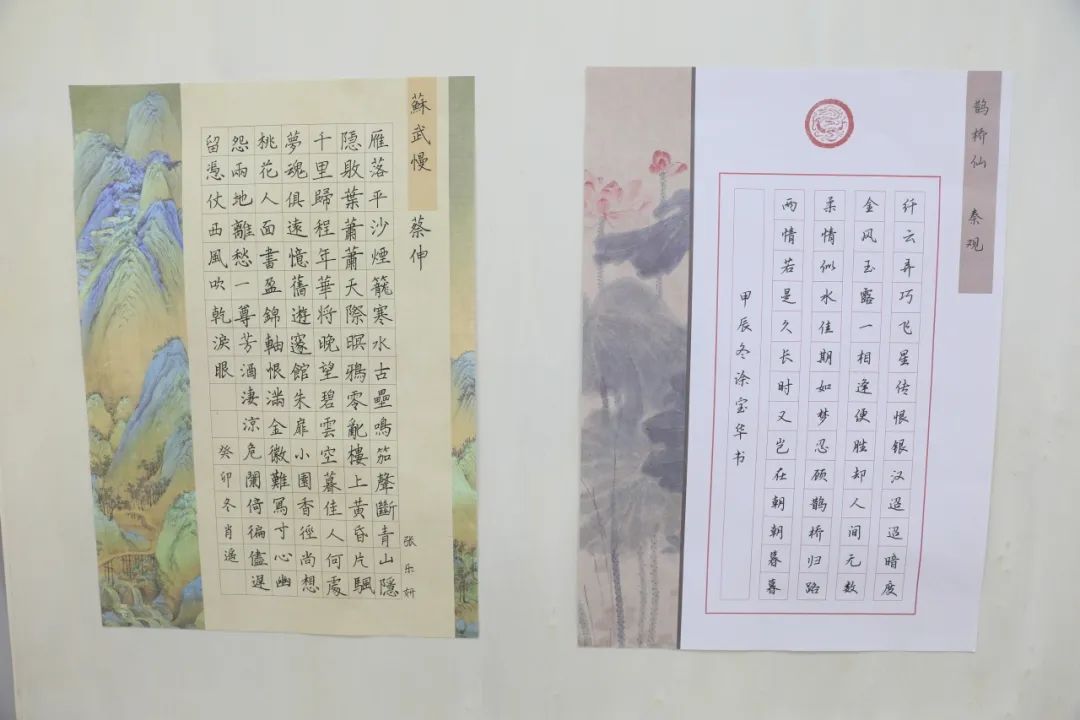 蘇武慢 蔡伸
雁落平沙煙籠寒水古壘鳴笳聲斷青山隱
隱敗葉蕭蕭天際暝鴉零亂樓上黃昏片颿
千里歸程年華將晚望碧雲空暮佳人何處
夢魂俱遠憶舊遊邃館朱扉小園香徑尚想
桃花人面書盈錦軸恨滿金徽難寫寸心幽
怨兩地離愁一尊芳酒淒涼危闌倚徧儘遲
留憑仗西風吹乾淚眼 癸卯冬肖遙
张乐妍
鹊桥仙 秦观
纤云弄巧飞星传恨银汉迢迢暗度
金风玉露一相逢便胜却人间无数
柔情似水佳期如梦忍顾鹊桥归路
两情若是久长时又岂在朝朝暮暮
甲辰冬涂宝华书